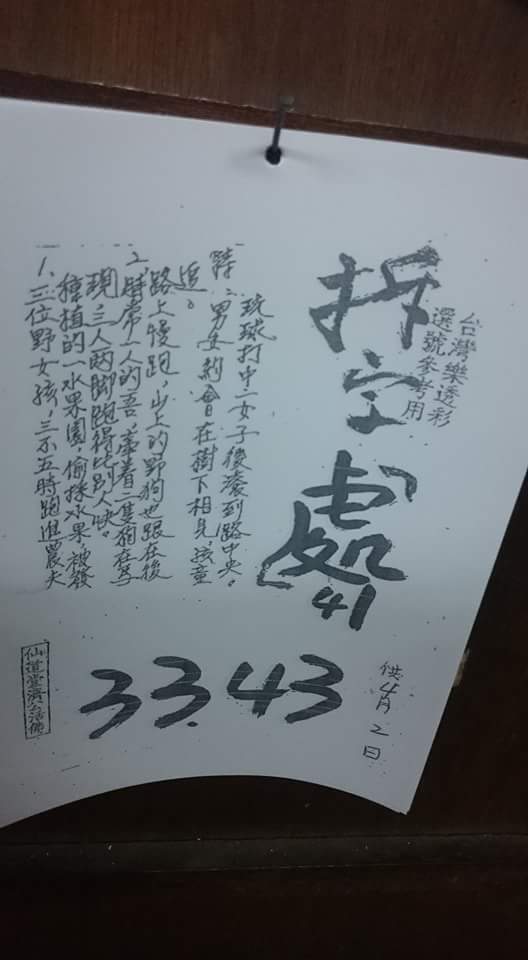 台灣樂透彩
選號參考用
拆字處
41
1、三位野女孩,三不五時跑進農夫
種植的一水果園,偷採水果被發
現,三人两脚跑得比别人快。
2、時常一人的吾,牽着二隻狗在馬
路上慢跑,山上的野狗也跟在後
追。
男女約會在樹下相見,孩童
玩球打中一女子後滾到路中央。
33.43
供4月2日
仙道堂濟公活佛